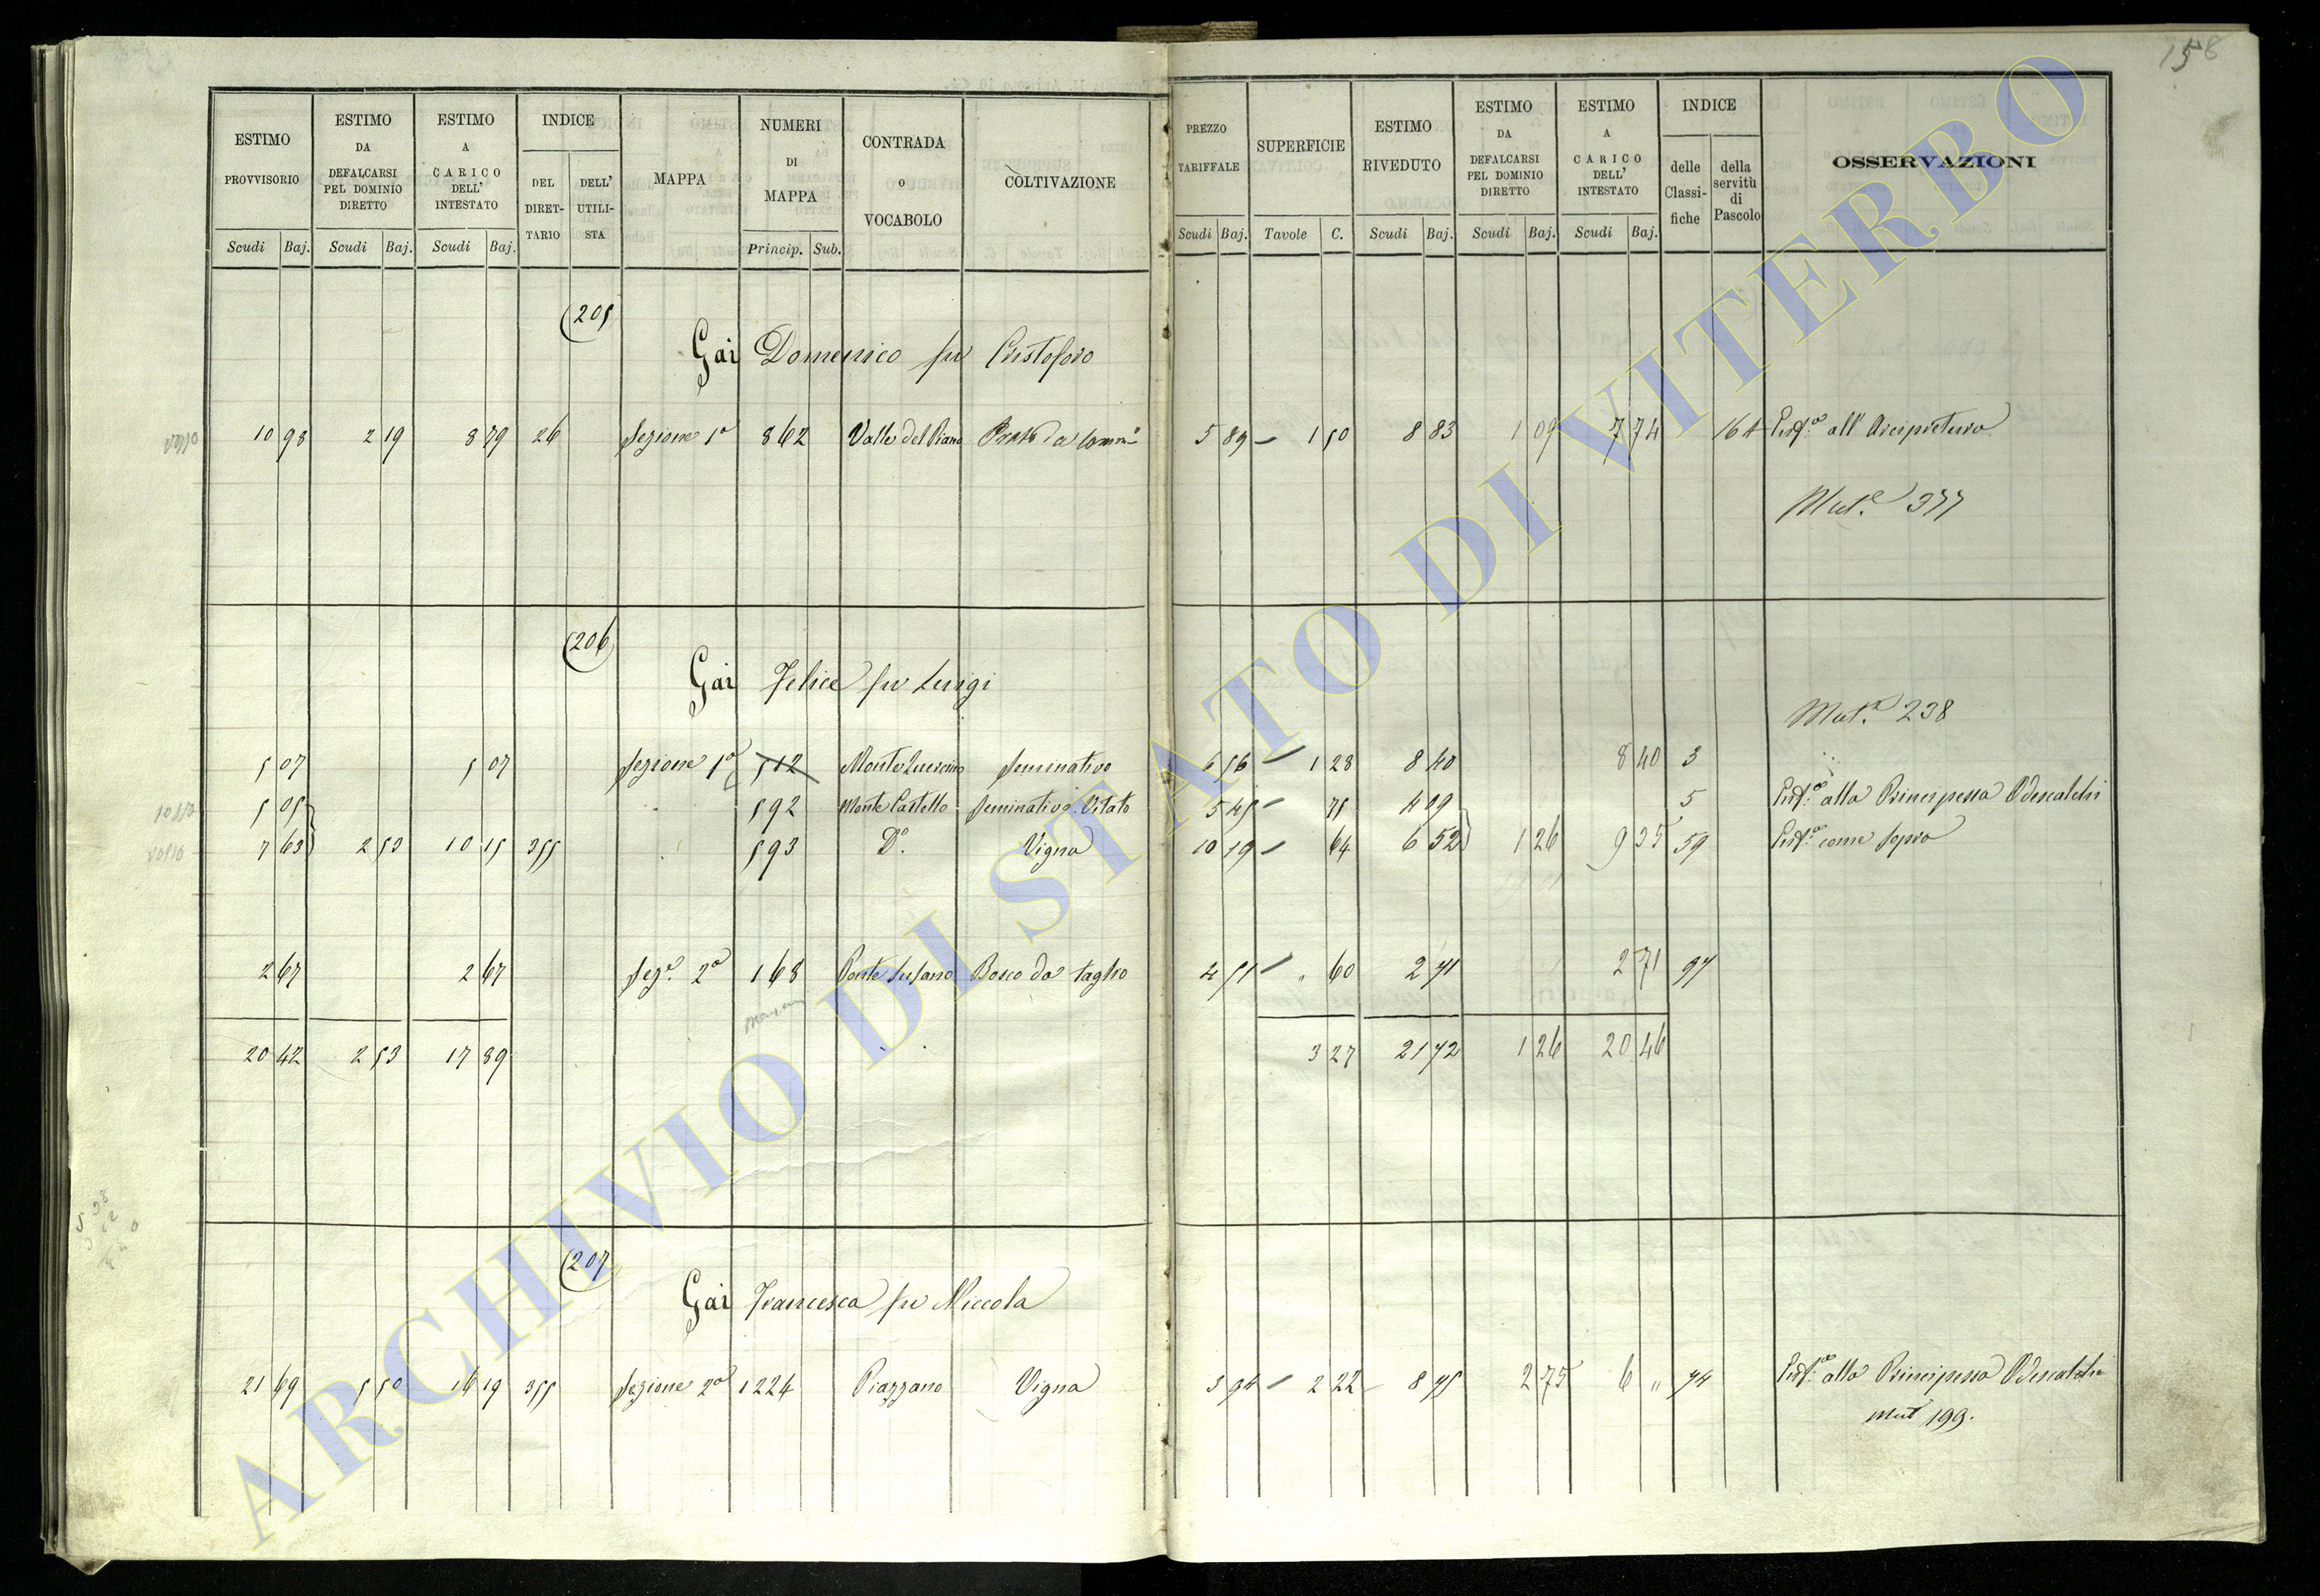 158
ESTIMO PROVVISORIO
ESTIMO DA DEFALCARSI PEL DOMINIO DIRETTO
ESTIMO A CARICO DELL' INTESTATO
INDICE
DEL DIRET-TARIO
DELL' UTILI-STA
MAPPA
NUMERI DI MAPPA
CONTRADA O VOCABOLO
COLTIVAZIONE
PREZZO TARIFFALE
SUPERFICIE
ESTIMO RIVEDUTO
ESTIMO DA DEFALCARSI PEL DOMINIO DIRETTO
ESTIMO A CARICO DELL' INTESTATO
INDICE
delle Classi-fiche
della servitù di Pascolo
OSSERVAZIONI
Scudi Baj. Scudi Baj. Scudi Baj. Princip. Sub. Scudi Baj. Tavole C. Scudi Baj. Scudi Baj. Scudi Baj.
205
Gai Domenico fu Cristoforo
10 98 2 19 8 79 26 Sezione 1a 862 Valle del Piano Prato da 5 89 1 50 8 83 1 09 7 74 164 all' Arcipretura
Mut.e 377
206
Gai Felice fu Luigi
Mut.e 238
5 07 5 07 Sezione 1a 512 Monte Seminativo 6 56 1 28 8 40 8 40 3
5 05 592 Monte Castello Seminativo Vitato 5 45 75 4 09 5 alla Principessa Odescalchi
7 63 2 53 10 15 355 593 Do. Vigna 10 19 64 6 52 1 26 9 35 59 come sopra
2 67 2 67 Sez.e 2a 168 Ponte Bosco da taglio 4 51 " 60 2 71 2 71 97
20 42 2 53 17 89 3 27 21 72 1 26 20 46
207
Gai Francesca fu Niccola
21 69 5 50 16 19 355 Sezione 2a 1224 Piazzano Vigna 3 94 2 22 8 75 2 75 6 " 74 alla Principessa Odescalchi
Mut 199.
ARCHIVIO DI STATO DI VITERBO